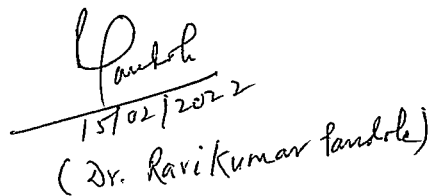 15/02/2022
(Dr. Ravikumar Pandole)